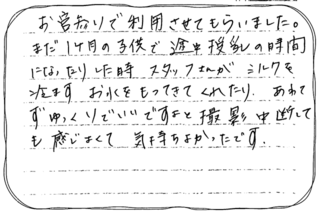 お宮参りで利用させてもらいました。
まだ1ヶ月の子供で途中授乳の時間
になったりした時 スタッフさんが ミルクを
冷ます お水をもってきてくれたり、あわて
ずゆっくりでいいですよと撮影中断して
も 感じよくて 気持ちよかったです.